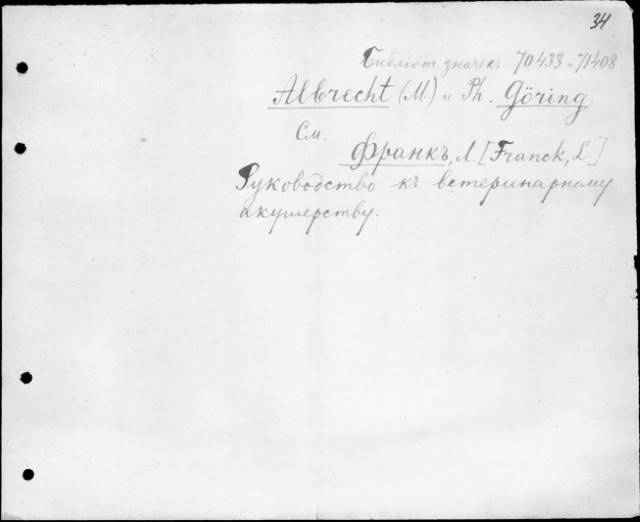 34
Библіот. значекъ 70433 и 71408
Albrecht (M) и Ph. Göring
См.
Франкъ, Л. [Franck, L.]
Руководство къ ветеринарному
акушерству.